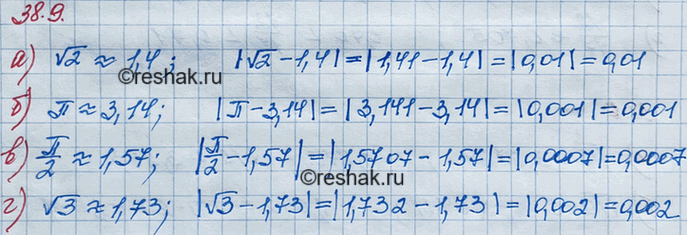 38.9.
а) √2 ≈ 1,4; |√2 - 1,4| = |1,41 - 1,4| = |0,01| = 0,01
©reshak.ru
б) π ≈ 3,14; |π - 3,14| = |3,141 - 3,14| = |0,001| = 0,001
в) π/2 ≈ 1,57; |π/2 - 1,57| = |1,5707 - 1,57| = |0,0007| = 0,0007
©reshak.ru
г) √3 ≈ 1,73; |√3 - 1,73| = |1,732 - 1,73| = |0,002| = 0,002